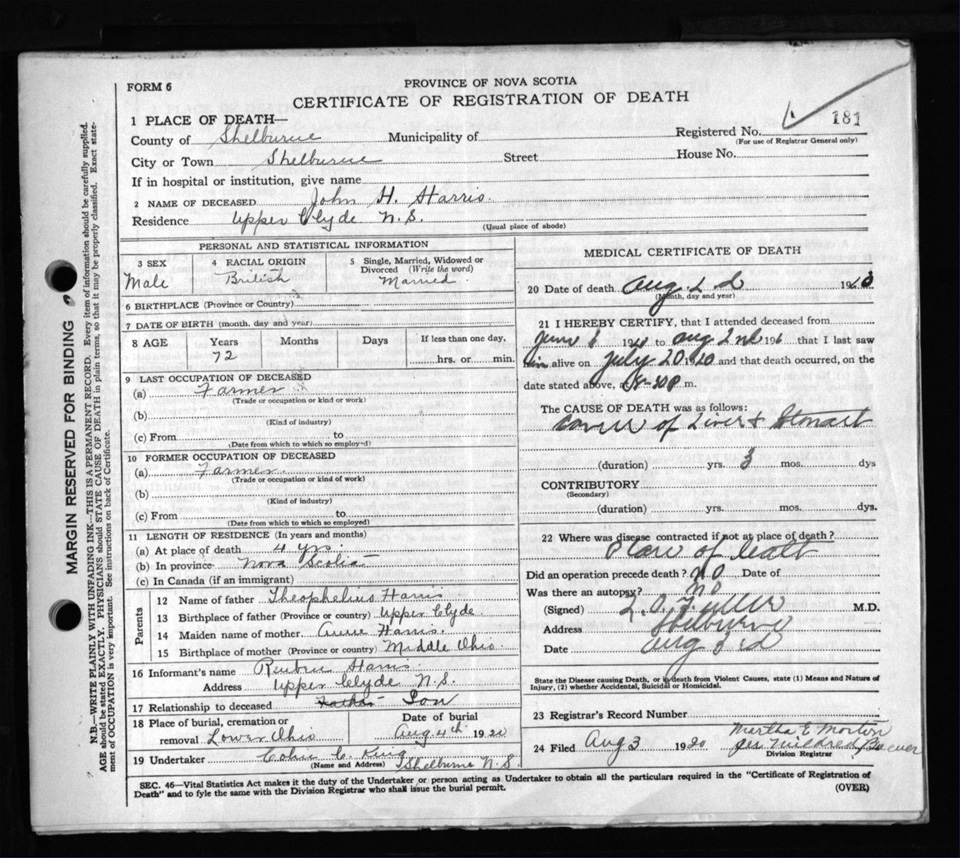 FORM 6
PROVINCE OF NOVA SCOTIA
CERTIFICATE OF REGISTRATION OF DEATH
1 PLACE OF DEATH—
County of Shelburne Municipality of
Registered No. 181
(For use of Registrar General only)
City or Town Shelburne Street House No.
If in hospital or institution, give name
2 NAME OF DECEASED John H. Harris.
Residence Upper Clyde N.S.
(Usual place of abode)
MARGIN RESERVED FOR BINDING
N.B.—WRITE PLAINLY WITH UNFADING INK—THIS IS A PERMANENT RECORD. Every item of information should be carefully supplied.
AGE should be stated EXACTLY. PHYSICIANS should STATE CAUSE OF DEATH in plain terms, so that it may be properly classified. Exact state-
ment of OCCUPATION is very important. See instructions on back of Certificate.
PERSONAL AND STATISTICAL INFORMATION
3 SEX
Male
4 RACIAL ORIGIN
British
5 Single, Married, Widowed or
Divorced (Write the word)
Married
6 BIRTHPLACE (Province or Country)
7 DATE OF BIRTH (month, day and year)
8 AGE Years Months Days If less than one day,
72 hrs. or min.
9 LAST OCCUPATION OF DECEASED
(a) Farmer
(Trade or occupation or kind of work)
(b)
(Kind of industry)
(c) From to
(Date from which to which so employed)
10 FORMER OCCUPATION OF DECEASED
(a) Farmer
(Trade or occupation or kind of work)
(b)
(Kind of industry)
(c) From to
(Date from which to which so employed)
11 LENGTH OF RESIDENCE (In years and months)
(a) At place of death 4 yrs.
(b) In province Nova Scotia
(c) In Canada (if an immigrant)
Parents
12 Name of father Theophelius Harris
13 Birthplace of father (Province or country) Upper Clyde
14 Maiden name of mother Annie Harris.
15 Birthplace of mother (Province or country) Middle Ohio
16 Informant's name Reuben Harris
Address Upper Clyde N.S.
17 Relationship to deceased Father Son
18 Place of burial, cremation or
removal Lower Ohio
Date of burial
Aug 4th 1920
19 Undertaker Colin C. King
(Name and Address) Shelburne N.S.
MEDICAL CERTIFICATE OF DEATH
20 Date of death Aug 2d 19
(Month, day and year)
21 I HEREBY CERTIFY, that I attended deceased from
June 19 to Aug 2nd 19 that I last saw
him alive on July 20 1920 and that death occurred, on the
date stated above, at 8-30P m.
The CAUSE OF DEATH was as follows:
of Liver +
(duration) yrs. 3 mos. dys
CONTRIBUTORY
(Secondary)
(duration) yrs. mos. dys.
22 Where was disease contracted if not at place of death?
Place of death
Did an operation precede death? No Date of
Was there an autopsy? No
(Signed) L. O. Fuller M.D.
Address Shelburne
Date Aug
State the Disease causing Death, or in death from Violent Causes, state (1) Means and Nature of
Injury, (2) whether Accidental, Suicidal or Homicidal.
23 Registrar's Record Number
24 Filed Aug 3 1920
Martha E. Morton
per Mildred
Division Registrar
SEC. 46—Vital Statistics Act makes it the duty of the Undertaker or person acting as Undertaker to obtain all the particulars required in the "Certificate of Registration of
Death" and to fyle the same with the Division Registrar who shall issue the burial permit.
(OVER)